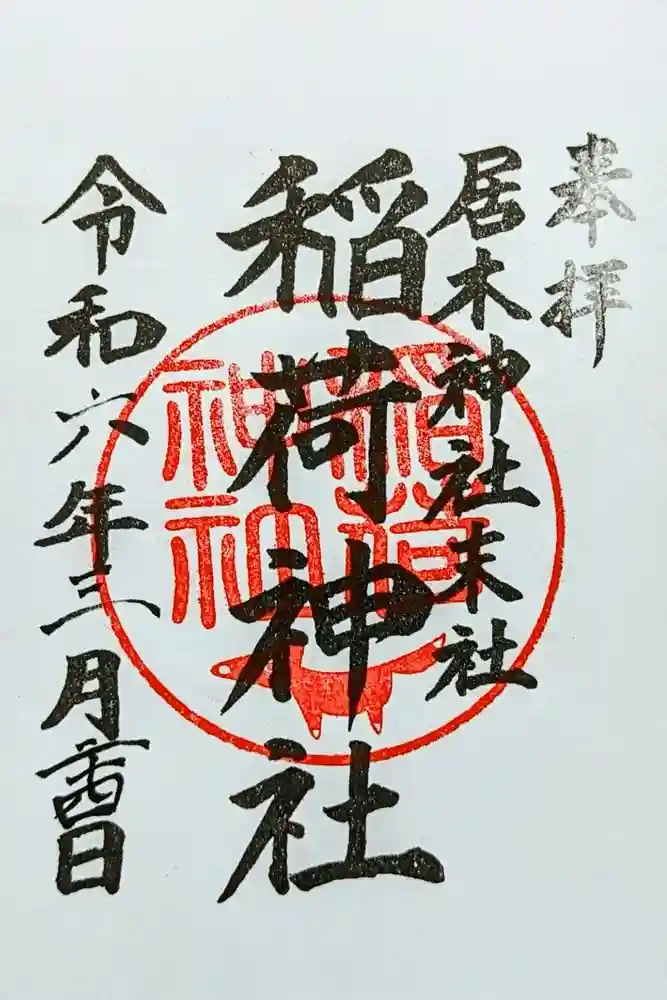 奉拝
居木神社末社
稲荷神社
令和六年三月二十四日